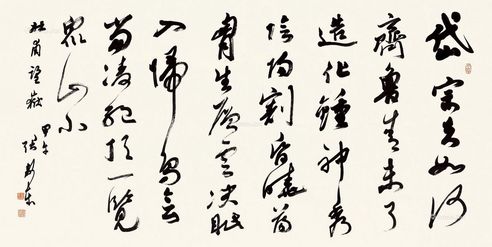 岱宗夫如何
齊魯青未了
造化鍾神秀
陰陽割昏曉蕩
胸生層雲決眦
入歸鳥會
當凌絕頂一覽
眾山小
杜甫望嶽
甲午